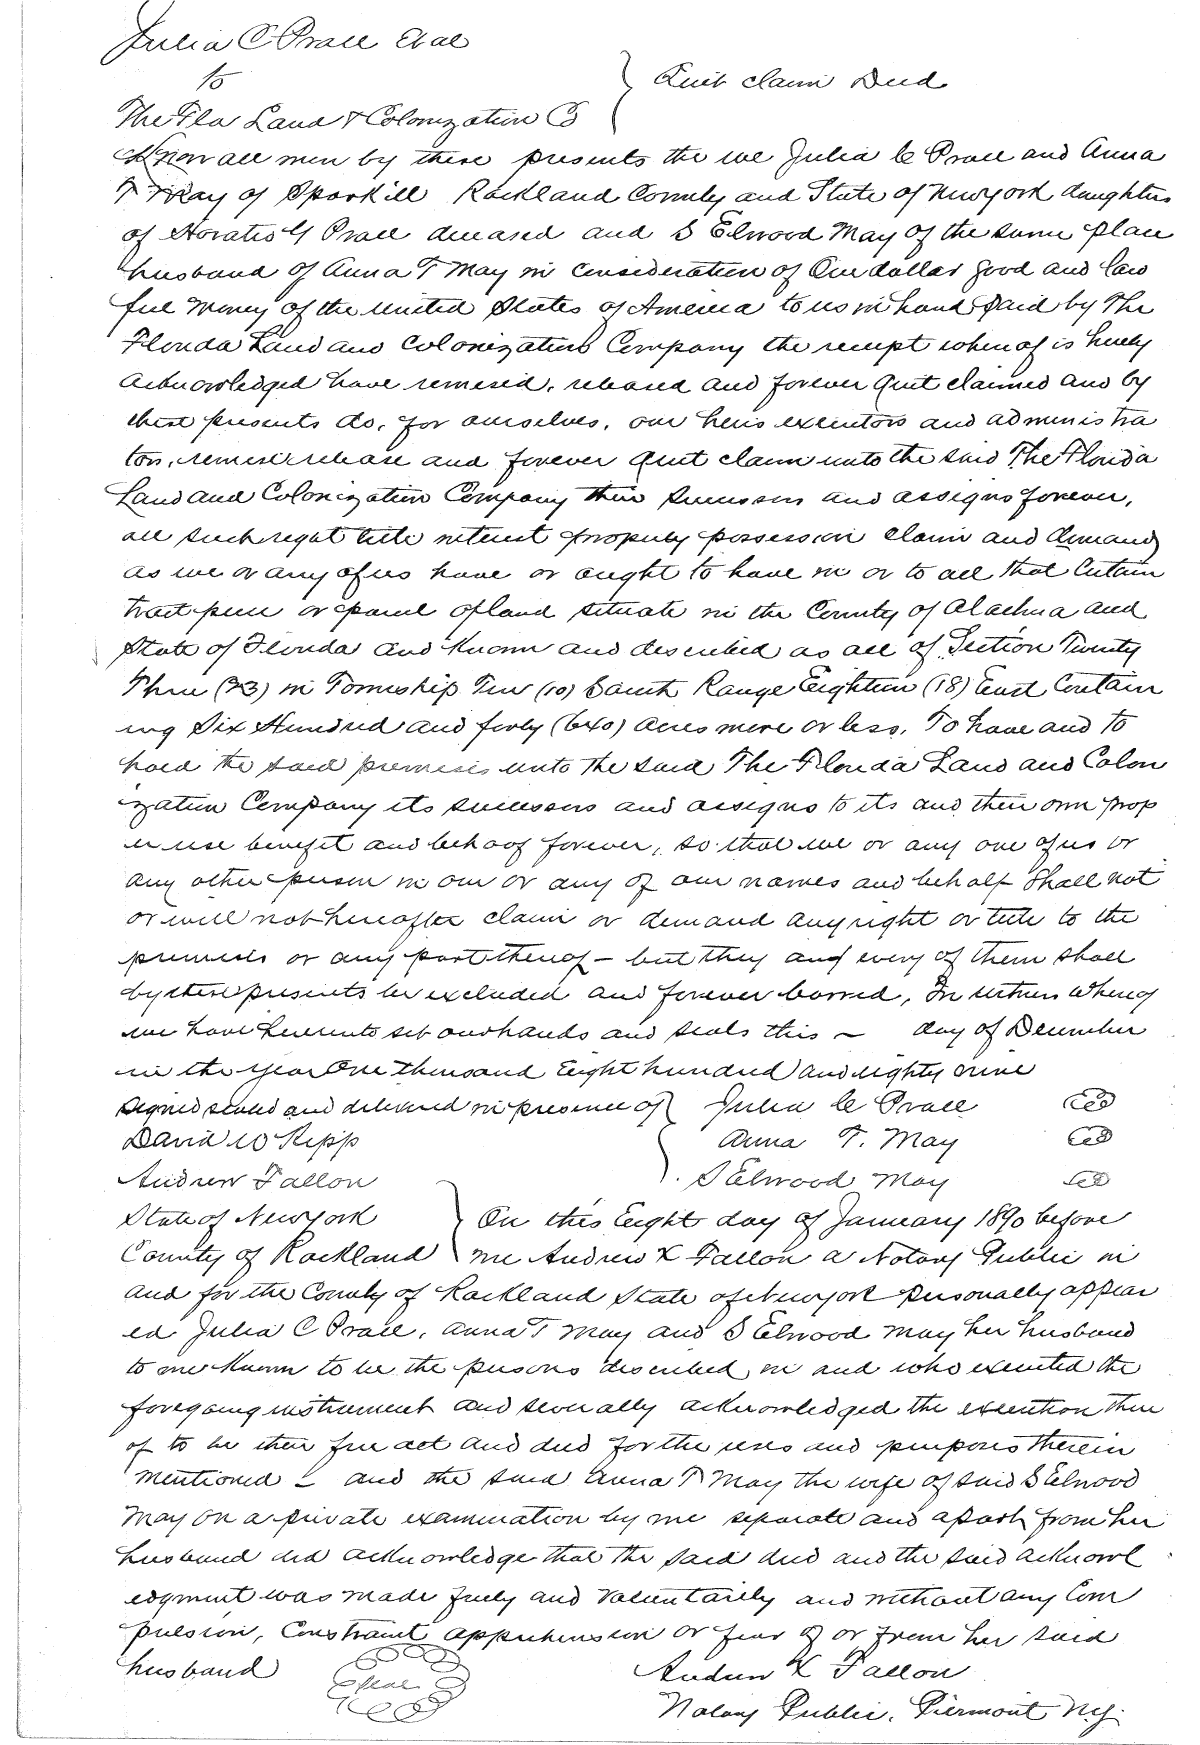 Julia C Prall et al
to
Quit claim Deed
The Fla Land & Colonization Co
Know all men by these presents the we Julia C Prall and Anna
T May of Sparkill Rockland County and State of New york daughters
of Horatio G Prall deceased and S Elwood May of the same place
husband of Anna T May in consideration of One dollar good and law
ful money of the united States of America to us in hand paid by The
Florida Land and Colonization Company the receipt whereof is hereby
acknowledged have remised, released and forever quit claimed and by
these presents do, for ourselves, our heirs executors and administra
tors, remise release and forever quit claim unto the said The Florida
Land and Colonization Company their successors and assigns forever,
all such right title interest property possession claim and demand
as we or any of us have or ought to have in or to all that Certain
tract piece or parcel of land situate in the County of Alachua and
State of Florida and known and described as all of Section Twenty
Three (23) in Township Ten (10) South Range Eighteen (18) East Contain
ing Six Hundred and forty (640) acres more or less, To have and to
hold the said premises unto the said The Florida Land and Colon
ization Company its successors and assigns to its and their own prop
er use benefit and behoof forever, so that we or any one of us or
any other person in our or any of our names and behalf shall not
or will not hereafter claim or demand any right or title to the
premises or any part thereof - but they and every of them shall
by these presents be excluded and forever barred, In witness whereof
we have hereunto set our hands and seals this - day of December
in the year One thousand Eight hundred and eighty nine
Signed sealed and delivered in presence of Julia C Prall
David W Kipp Anna T. May
Andrew Fallon S Elwood May
State of New york On this Eight day of January 1890 before
County of Rockland me Andrew X Fallon a Notary Public in
and for the County of Rockland State of New york personally appear
ed Julia C Prall, Anna T May and S Elwood May her husband
to me known to be the persons described in and who executed the
foregoing instrument and severally acknowledged the execution there
of to be their free act and deed for the uses and purposes therein
mentioned - and the said Anna T May the wife of said S Elwood
May on a private examination by me separate and apart from her
husband did acknowledge that the said deed and the said acknowl
edgment was made freely and voluntarily and without any Com
pulsion, Constraint apprehension or fear of or from her said
husband Andrew X Fallon
Seal
Notary Public, Piermont N.y.